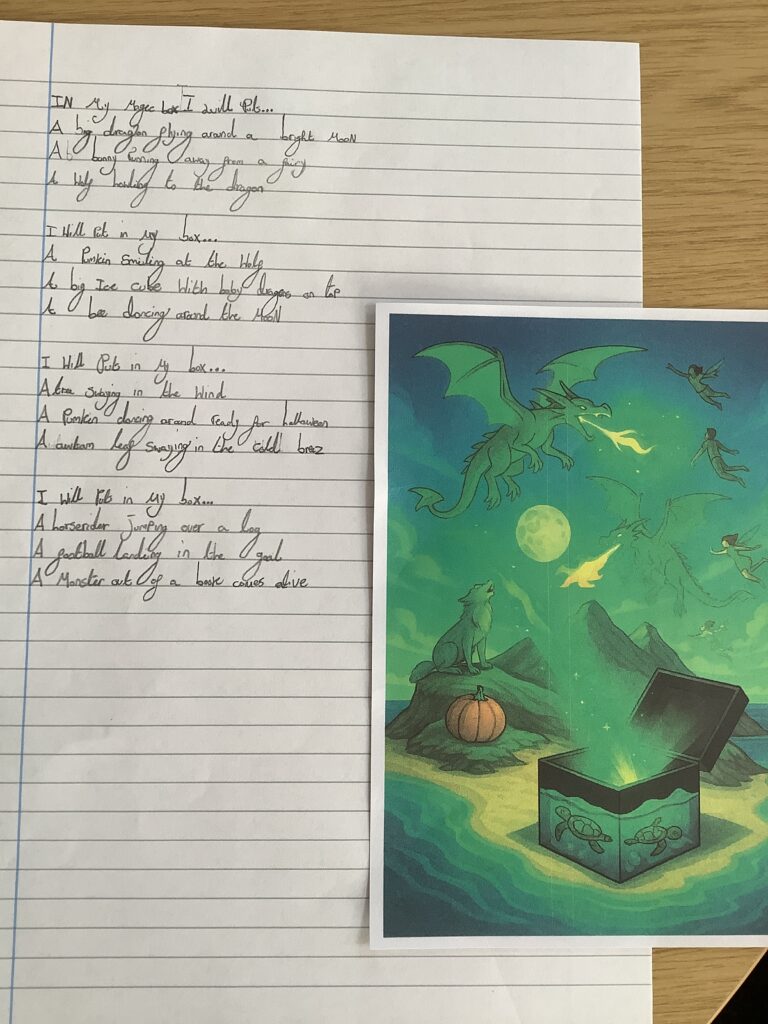 IN My Magec box I will Put...
A big dragon flying around a bright MooN
A bunny running away from a fairy
A Wolf howling to the dragon
I Will Put in my box...
A Pumkin Smiling at the Wolf
A big Ice cube With baby dragens on top
A bee dancing around the MooN
I Will Put in My box...
A tree Swaying in the Wind
A Pumkin dancing around ready for halloween
A autham leaf Swaying in the cold brez
I Will Put in My box...
A horserider jumping over a log
A football landing in the goal
A Monster out of a book comes alive